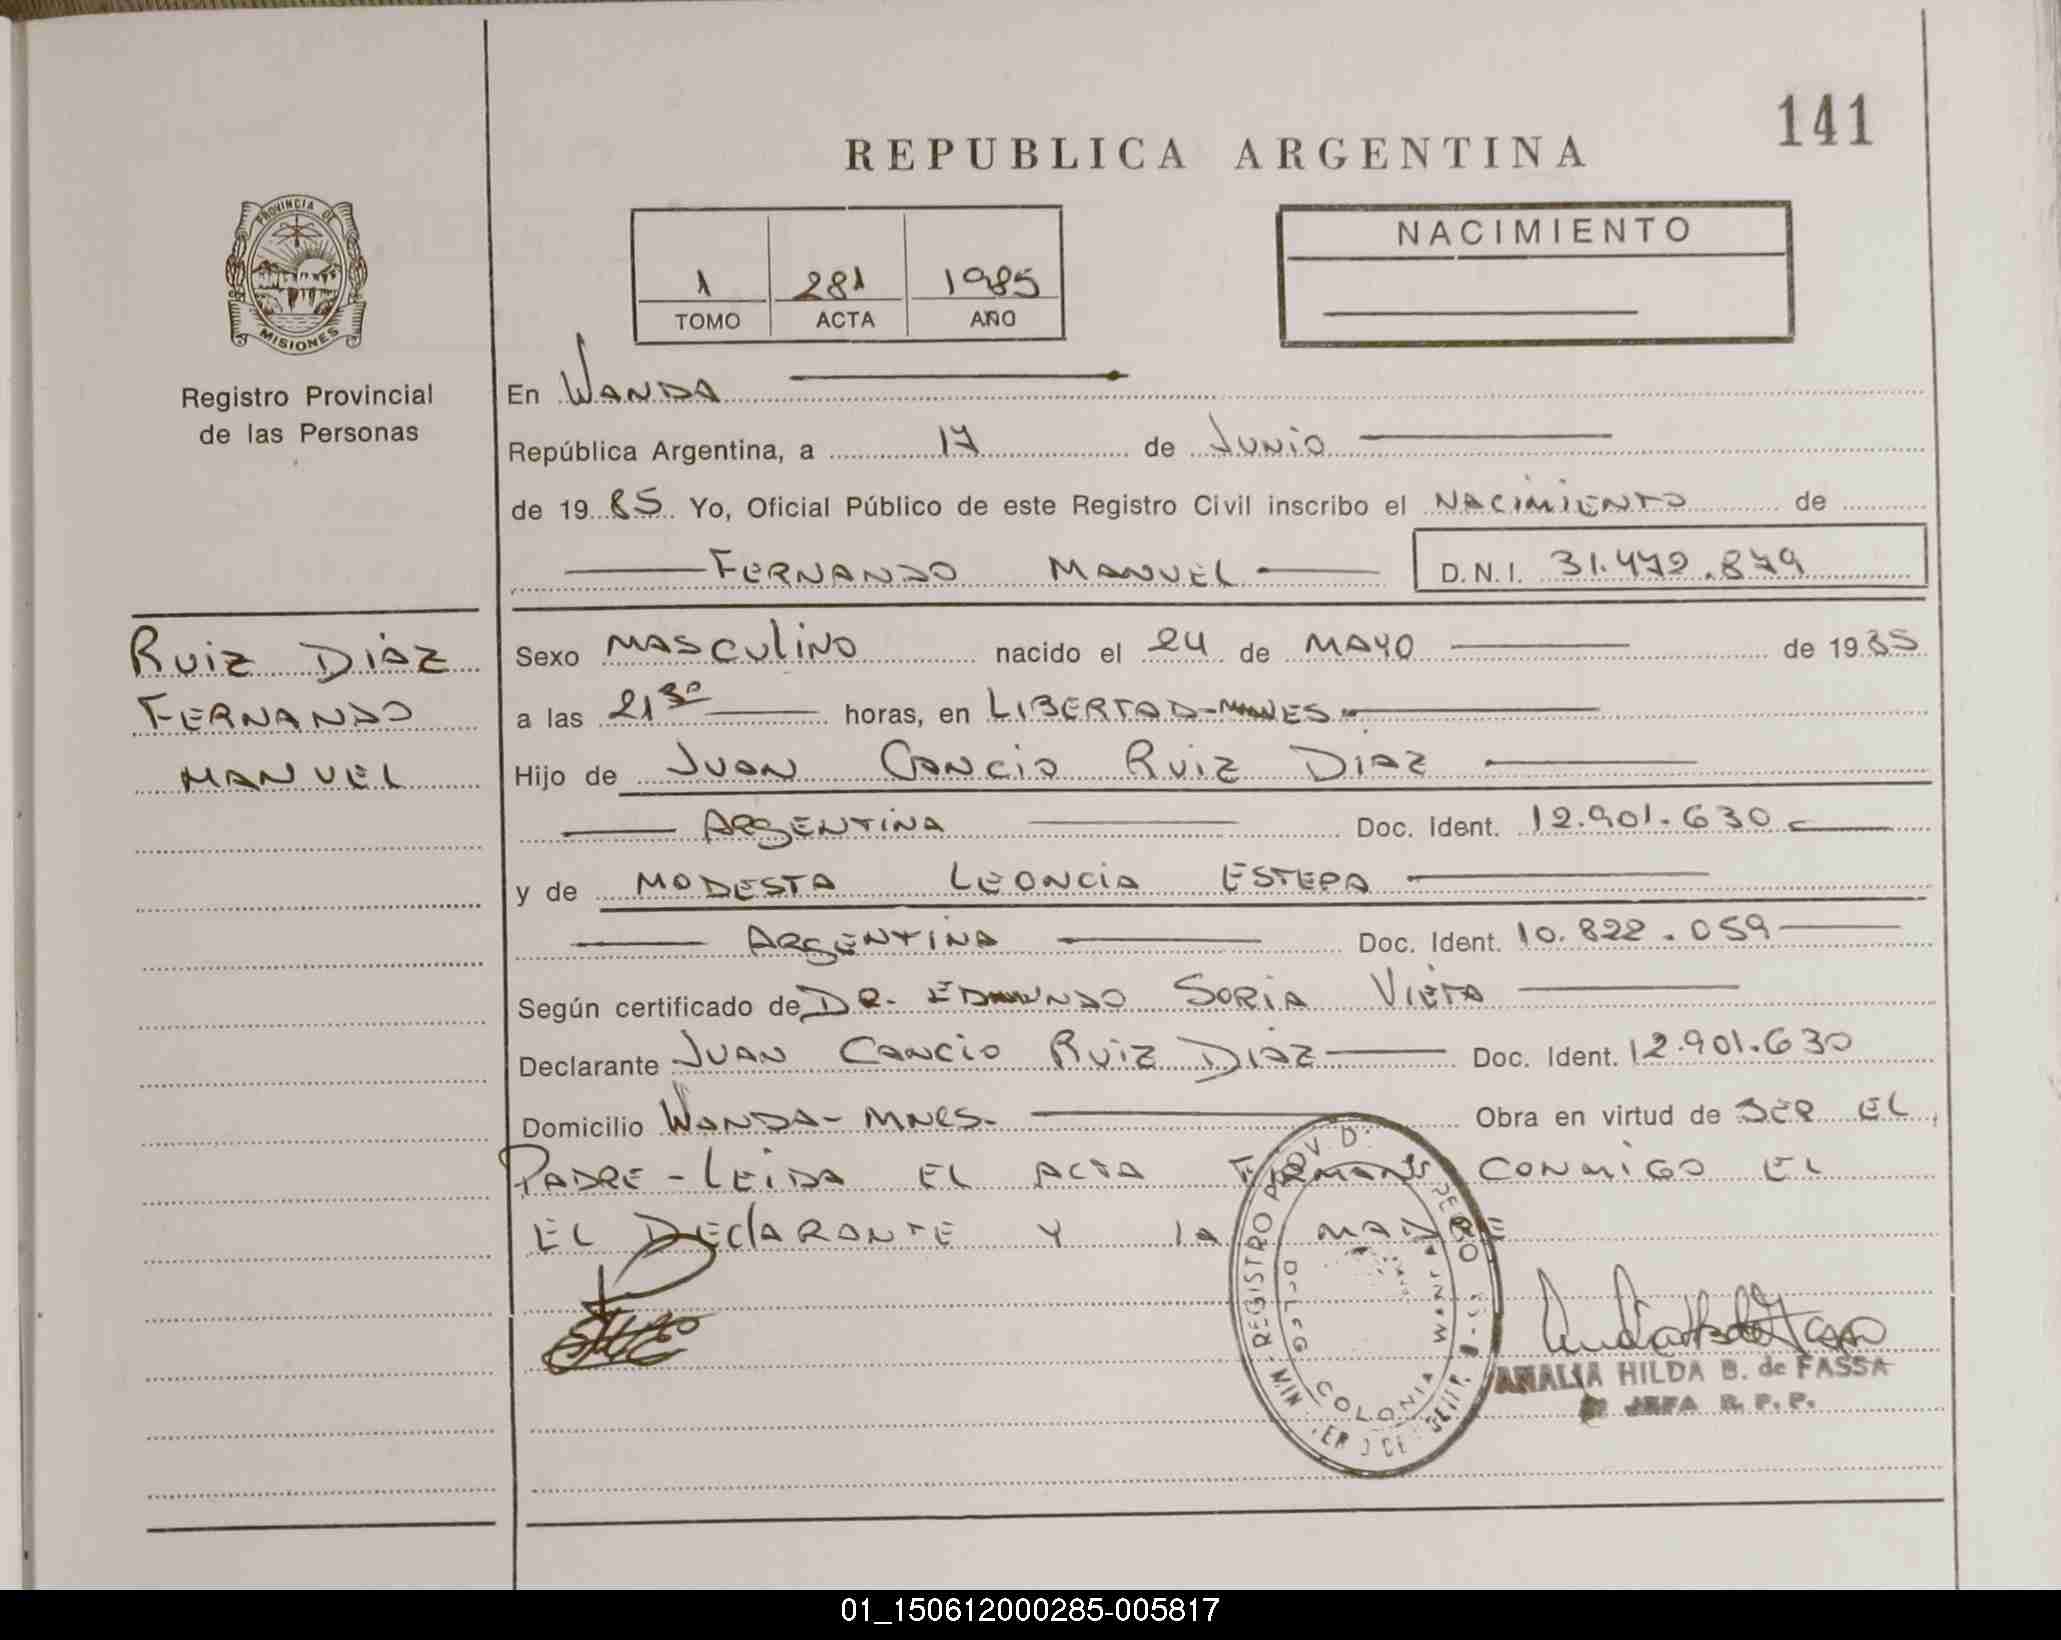 141
REPUBLICA ARGENTINA
PROVINCIA DE
MISIONES
Registro Provincial
de las Personas
1 281 1985
TOMO ACTA AÑO
NACIMIENTO
En WANDA
República Argentina, a 17 de JUNIO
de 1985 Yo, Oficial Público de este Registro Civil inscribo el NACIMIENTO de
FERNANDO MANUEL D.N.I. 31.472.879
RUIZ DIAZ
FERNANDO
MANUEL
Sexo MASCULINO nacido el 24 de MAYO de 1985
a las 21 30 horas, en LIBERTAD-MNES
Hijo de JUAN CANCIO RUIZ DIAZ
ARGENTINA Doc. Ident. 12.901.630
y de MODESTA LEONCIA ESTEPA
ARGENTINA Doc. Ident. 10.822.059
Según certificado de DR. EDMUNDO SORIA VIETA
Declarante JUAN CANCIO RUIZ DIAZ Doc. Ident. 12.901.630
Domicilio WANDA-MNES- Obra en virtud de SER EL
PADRE-LEIDA EL ACTA FIRMAN CONMIGO EL
EL DEClARANTE Y lA MADRE
REGISTRO PROV. D
COLONIA WAN
AMALIA HILDA B. de FASSA
JEFA R. P. P.
01_150612000285-005817